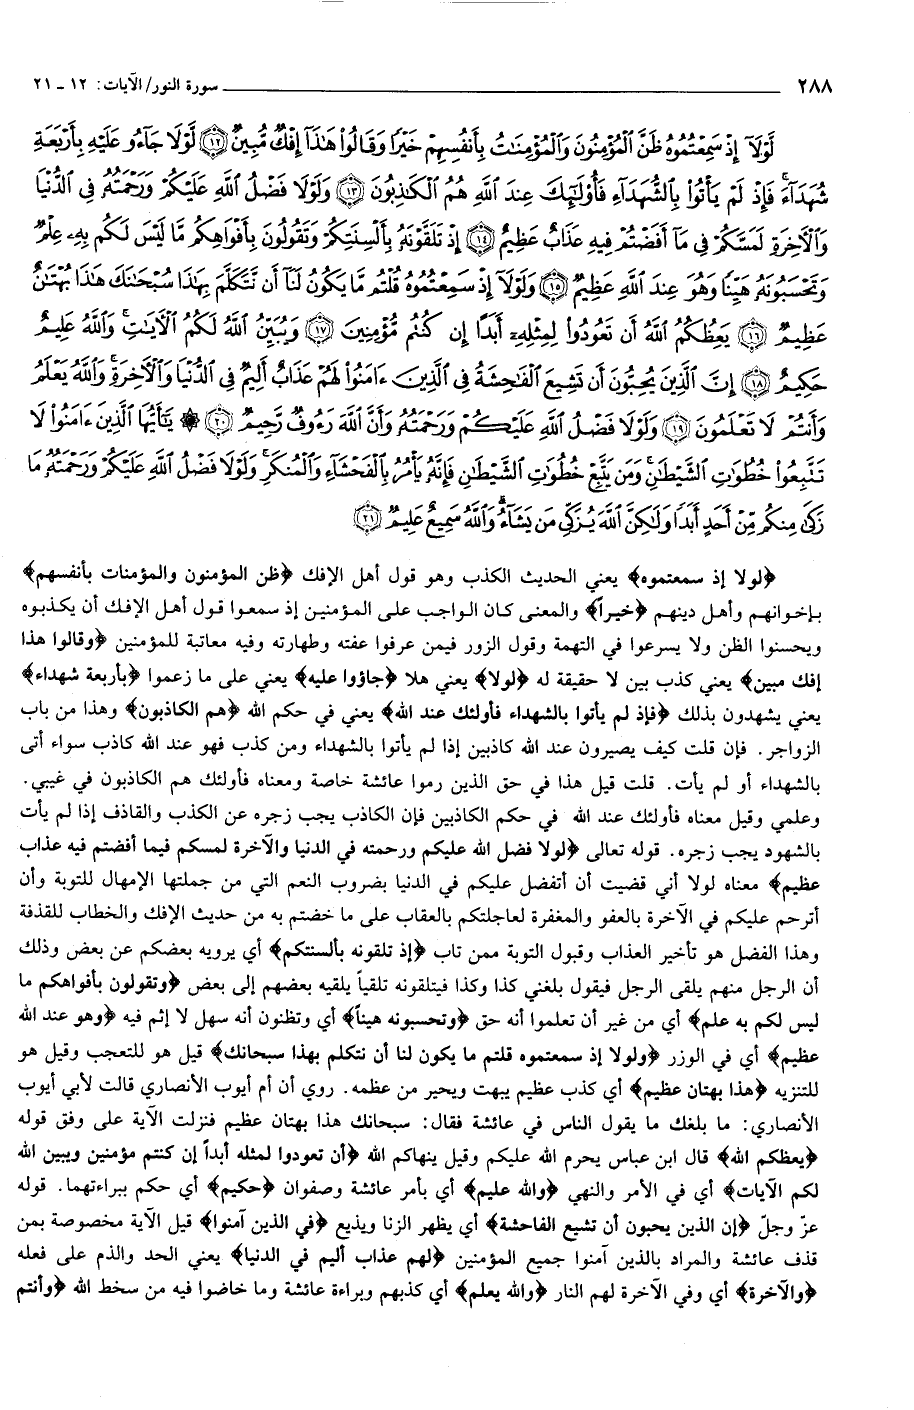 ٢٨٨ سورة النور/ الآيات: ١٢ - ٢١
لَّوْلَآ إِذْ سَمِعْتُمُوهُ ظَنَّ ٱلْمُؤْمِنُونَ وَٱلْمُؤْمِنَٰتُ بِأَنفُسِهِمْ خَيْرًا وَقَالُوا۟ هَٰذَآ إِفْكٌ مُّبِينٌ ﴿١٢﴾ لَّوْلَا جَآءُو عَلَيْهِ بِأَرْبَعَةِ
شُهَدَآءَ ۚ فَإِذْ لَمْ يَأْتُوا۟ بِٱلشُّهَدَآءِ فَأُو۟لَٰٓئِكَ عِندَ ٱللَّهِ هُمُ ٱلْكَٰذِبُونَ ﴿١٣﴾ وَلَوْلَا فَضْلُ ٱللَّهِ عَلَيْكُمْ وَرَحْمَتُهُۥ فِى ٱلدُّنْيَا
وَٱلْءَاخِرَةِ لَمَسَّكُمْ فِى مَآ أَفَضْتُمْ فِيهِ عَذَابٌ عَظِيمٌ ﴿١٤﴾ إِذْ تَلَقَّوْنَهُۥ بِأَلْسِنَتِكُمْ وَتَقُولُونَ بِأَفْوَاهِكُم مَّا لَيْسَ لَكُم بِهِۦ عِلْمٌ
وَتَحْسَبُونَهُۥ هَيِّنًا وَهُوَ عِندَ ٱللَّهِ عَظِيمٌ ﴿١٥﴾ وَلَوْلَآ إِذْ سَمِعْتُمُوهُ قُلْتُم مَّا يَكُونُ لَنَآ أَن نَّتَكَلَّمَ بِهَٰذَا سُبْحَٰنَكَ هَٰذَا بُهْتَٰنٌ
عَظِيمٌ ﴿١٦﴾ يَعِظُكُمُ ٱللَّهُ أَن تَعُودُوا۟ لِمِثْلِهِۦٓ أَبَدًا إِن كُنتُم مُّؤْمِنِينَ ﴿١٧﴾ وَيُبَيِّنُ ٱللَّهُ لَكُمُ ٱلْءَايَٰتِ ۚ وَٱللَّهُ عَلِيمٌ
حَكِيمٌ ﴿١٨﴾ إِنَّ ٱلَّذِينَ يُحِبُّونَ أَن تَشِيعَ ٱلْفَٰحِشَةُ فِى ٱلَّذِينَ ءَامَنُوا۟ لَهُمْ عَذَابٌ أَلِيمٌ فِى ٱلدُّنْيَا وَٱلْءَاخِرَةِ ۚ وَٱللَّهُ يَعْلَمُ
وَأَنتُمْ لَا تَعْلَمُونَ ﴿١٩﴾ وَلَوْلَا فَضْلُ ٱللَّهِ عَلَيْكُمْ وَرَحْمَتُهُۥ وَأَنَّ ٱللَّهَ رَءُوفٌ رَّحِيمٌ ﴿٢٠﴾ ۞ يَٰٓأَيُّهَا ٱلَّذِينَ ءَامَنُوا۟ لَا
تَتَّبِعُوا۟ خُطُوَٰتِ ٱلشَّيْطَٰنِ ۚ وَمَن يَتَّبِعْ خُطُوَٰتِ ٱلشَّيْطَٰنِ فَإِنَّهُۥ يَأْمُرُ بِٱلْفَحْشَآءِ وَٱلْمُنكَرِ ۚ وَلَوْلَا فَضْلُ ٱللَّهِ عَلَيْكُمْ وَرَحْمَتُهُۥ مَا
زَكَىٰ مِنكُم مِّنْ أَحَدٍ أَبَدًا وَلَٰكِنَّ ٱللَّهَ يُزَكِّى مَن يَشَآءُ ۗ وَٱللَّهُ سَمِيعٌ عَلِيمٌ ﴿٢١﴾
﴿لولا إذ سمعتموه﴾ يعني الحديث الكذب وهو قول أهل الإفك ﴿ظن المؤمنون والمؤمنات بأنفسهم﴾
بإخوانهم وأهل دينهم ﴿خيراً﴾ والمعنى كان الواجب على المؤمنين إذ سمعوا قول أهل الإفك أن يكذبوه
ويحسنوا الظن ولا يسرعوا في التهمة وقول الزور فيمن عرفوا عفته وطهارته وفيه معاتبة للمؤمنين ﴿وقالوا هذا
إفك مبين﴾ يعني كذب بين لا حقيقة له ﴿لولا﴾ يعني هلا ﴿جاؤوا عليه﴾ يعني على ما زعموا ﴿بأربعة شهداء﴾
يعني يشهدون بذلك ﴿فإذ لم يأتوا بالشهداء فأولئك عند الله﴾ يعني في حكم الله ﴿هم الكاذبون﴾ وهذا من باب
الزواجر. فإن قلت كيف يصيرون عند الله كاذبين إذا لم يأتوا بالشهداء ومن كذب فهو عند الله كاذب سواء أتى
بالشهداء أو لم يأت. قلت قيل هذا في حق الذين رموا عائشة خاصة ومعناه فأولئك هم الكاذبون في غيبي.
وعلمي وقيل معناه فأولئك عند الله في حكم الكاذبين فإن الكاذب يجب زجره عن الكذب والقاذف إذا لم يأت
بالشهود يجب زجره. قوله تعالى ﴿لولا فضل الله عليكم ورحمته في الدنيا والآخرة لمسكم فيما أفضتم فيه عذاب
عظيم﴾ معناه لولا أني قضيت أن أتفضل عليكم في الدنيا بضروب النعم التي من جملتها الإمهال للتوبة وأن
أترحم عليكم في الآخرة بالعفو والمغفرة لعاجلتكم بالعقاب على ما خضتم به من حديث الإفك والخطاب للقذفة
وهذا الفضل هو تأخير العذاب وقبول التوبة ممن تاب ﴿إذ تلقونه بألسنتكم﴾ أي يرويه بعضكم عن بعض وذلك
أن الرجل منهم يلقى الرجل فيقول بلغني كذا وكذا فيتلقونه تلقياً يلقيه بعضهم إلى بعض ﴿وتقولون بأفواهكم ما
ليس لكم به علم﴾ أي من غير أن تعلموا أنه حق ﴿وتحسبونه هيناً﴾ أي وتظنون أنه سهل لا إثم فيه ﴿وهو عند الله
عظيم﴾ أي في الوزر ﴿ولولا إذ سمعتموه قلتم ما يكون لنا أن نتكلم بهذا سبحانك﴾ قيل هو للتعجب وقيل هو
للتنزيه ﴿هذا بهتان عظيم﴾ أي كذب عظيم يبهت ويحير من عظمه. روي أن أم أيوب الأنصاري قالت لأبي أيوب
الأنصاري: ما بلغك ما يقول الناس في عائشة فقال: سبحانك هذا بهتان عظيم فنزلت الآية على وفق قوله
﴿يعظكم الله﴾ قال ابن عباس يحرم الله عليكم وقيل ينهاكم الله ﴿أن تعودوا لمثله أبداً إن كنتم مؤمنين ويبين الله
لكم الآيات﴾ أي في الأمر والنهي ﴿والله عليم﴾ أي بأمر عائشة وصفوان ﴿حكيم﴾ أي حكم ببراءتهما. قوله
عزّ وجلّ ﴿إن الذين يحبون أن تشيع الفاحشة﴾ أي يظهر الزنا ويذيع ﴿في الذين آمنوا﴾ قيل الآية مخصوصة بمن
قذف عائشة والمراد بالذين آمنوا جميع المؤمنين ﴿لهم عذاب أليم في الدنيا﴾ يعني الحد والذم على فعله
﴿والآخرة﴾ أي وفي الآخرة لهم النار ﴿والله يعلم﴾ أي كذبهم وبراءة عائشة وما خاضوا فيه من سخط الله ﴿وأنتم